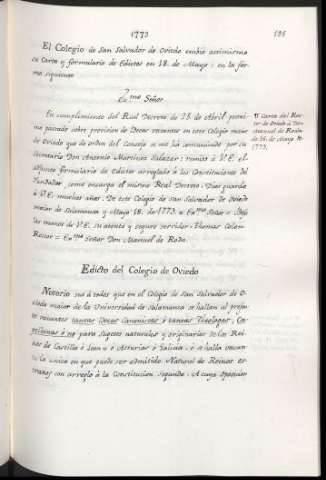 1773
El Colegio de San Salvador de Oviedo embió asimismo
su Carta y formulario de Edictos en 18. de Mayo: en la for-
ma siguiente
Exmo Señor
En cumplimiento del Real Decreto de 15. de Abril proxi-
mo pasado sobre provision de Becas vacantes en este Colegio maior
de Oviedo que de orden del Consejo se me há comunicado por su
Secretario Don Antonio Martinez Salazar: remito á V.E. el
adjunto formulario de Edictos arreglado á las Constituciones del
Fundador, como encarga el mismo Real Decreto. Dios guarde
á V.E. muchos años. De este Colegio de San Salvador de Oviedo
maior de Salamanca y Mayo 18. de 1773. = Exmo Señor =
las manos de V.E. su atento y seguro servidor = Thomas
Rector = Exmo Señor Don Manuel de Roda.
Carta del Rec-
tor de Oviedo á Don
Manuel de Roda
de 18. de Mayo de
1773.
Edicto del Colegio de Oviedo
Notorio sea á todos que en el Colegio de San Salvador de O-
viedo maior de la Universidad de Salamanca se hallan al presen-
te vacantes tantas Becas Canonistas ó tantas Theologas,
ó para Sugetos naturales y originarios de los Rei-
nos de Castilla ó Leon ó Asturias ó Galicia: ó se halla vacan-
te la unica en que puede ser admitido Natural de Reinos es-
traños con arreglo á la Constitucion Segunda. A cuya oposicion